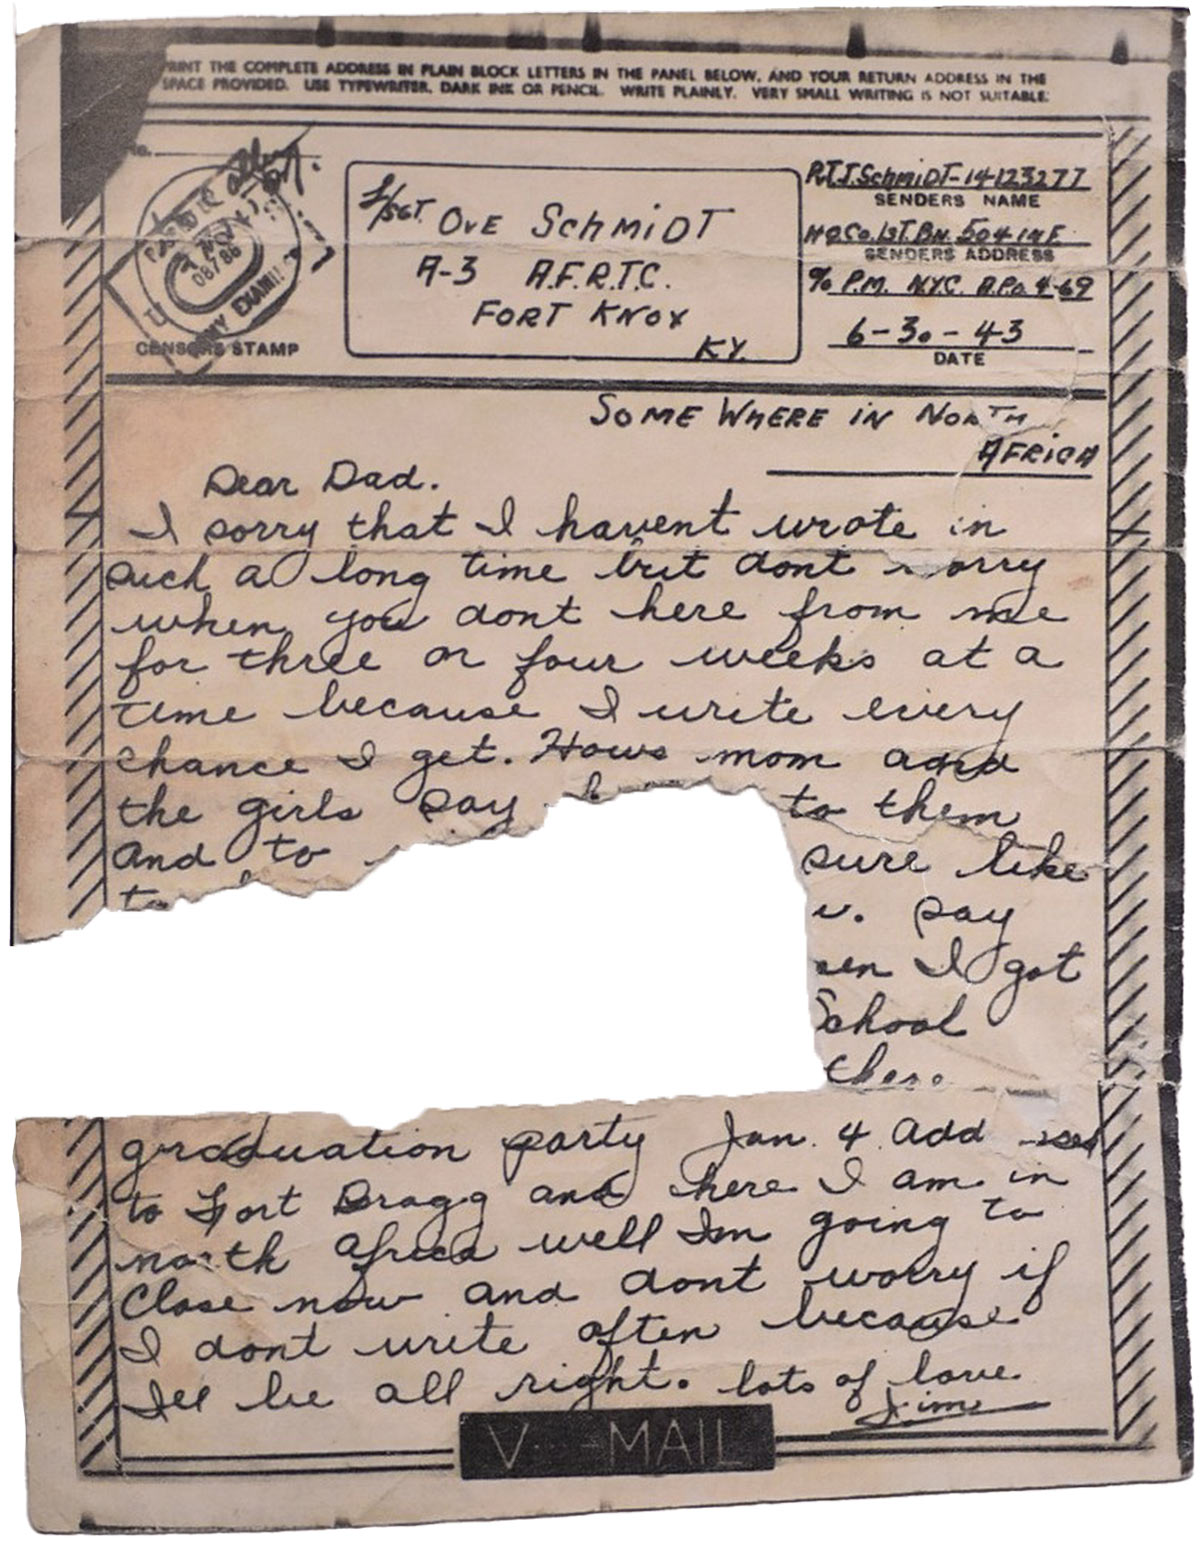 PRINT THE COMPLETE ADDRESS IN PLAIN BLOCK LETTERS IN THE PANEL BELOW, AND YOUR RETURN ADDRESS IN THE
SPACE PROVIDED. USE TYPEWRITER, DARK INK OR PENCIL. WRITE PLAINLY. VERY SMALL WRITING IS NOT SUITABLE.
No.
CENSORS STAMP
1/SGT. OVE SCHMIDT
A-3 A.F.R.T.C.
FORT KNOX
KY.
PVT. J. SCHMIDT-14123277
SENDERS NAME
HQ Co. 1ST. BN. 504 INF.
SENDERS ADDRESS
% P.M. NYC. A.P.O. 469
6-30-43
DATE
SOME WHERE IN NORTH
AFRICA
Dear Dad.
I sorry that I havent wrote in
such a long time but dont worry
when you dont here from me
for three or four weeks at a
time because I write every
chance I get. Hows mom and
the girls say to them
and to sure like
say
I got
School
graduation party Jan. 4 add
to Fort Bragg and here I am in
north Africa well Im going to
Close now and dont worry if
I dont write often because
Ill be all right. lots of love
Jim
V---MAIL